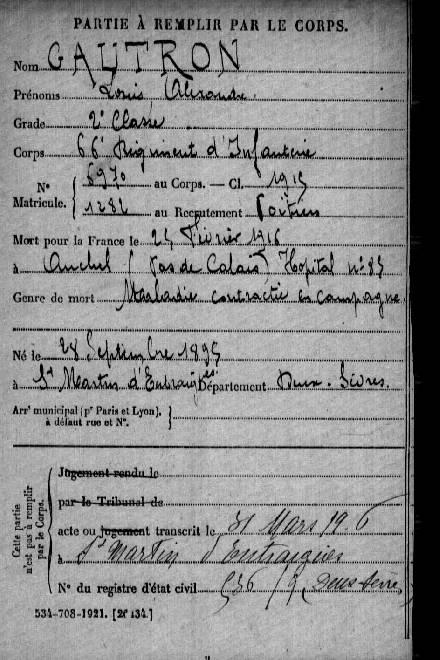 PARTIE À REMPLIR PAR LE CORPS.
Nom GAUTRON
Prénoms Louis Alexandre
Grade 2e Classe
Corps 66e Régiment d'Infanterie
Nos Matricule. { 6970 au Corps. — Cl. 1915
1282 au Recrutement Poitiers
Mort pour la France le 25 Février 1916
à Auchel (Pas de Calais) Hopital n° 83
Genre de mort Maaladie contractée en campagne
Né le 28 Septembre 1895
à St Martin d'Entraigues Département Deux-Sèvres.
Arrt municipal (pr Paris et Lyon), à défaut rue et N°. }
Cette partie n'est pas à remplir par le Corps.
Jugement rendu le
par le Tribunal de
acte ou jugement transcrit le 31 Mars 19 6
à St Martin d'Entraigues
N° du registre d'état civil
534-708-1921. [26434.]